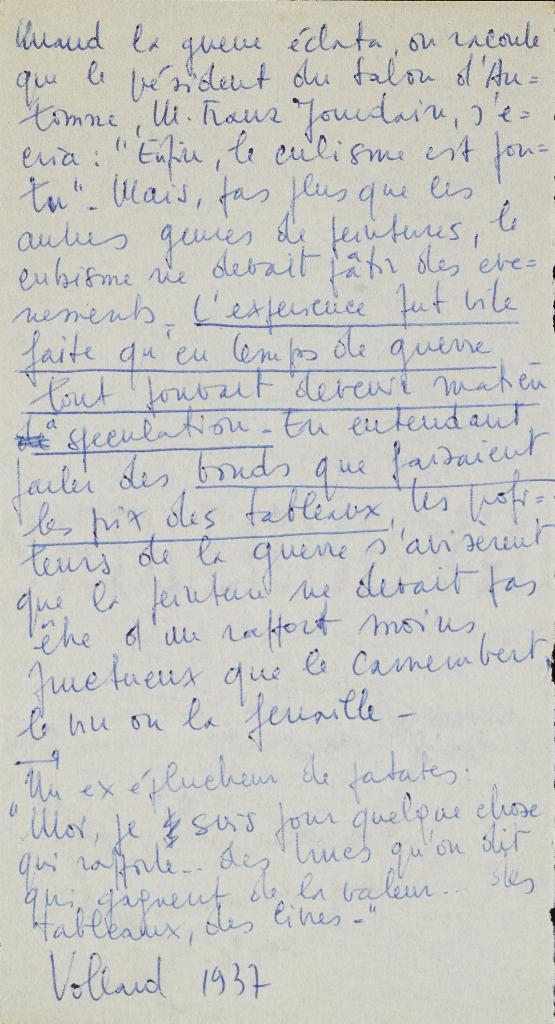 Quand la guerre éclata, on raconte
que le président du Salon d'Au=
tomne, M. Franz Jourdain, s'é=
cria : "Enfin, le cubisme est fou=
tu". Mais, pas plus que les
autres genres de peintures, le
cubisme ne devait pâtir des évé=
nements. L'expérience fut vite
faite qu'en temps de guerre
tout pouvait devenir matière
à spéculation. En entendant
parler des bonds que faisaient
les prix des tableaux, les profi=
teurs de la guerre s'avisèrent
que la peinture ne devait pas
être d'un rapport moins
fructueux que le camembert,
le vin ou la ferraille –
Un ex éplucheur de patates :
"Moi, je suis pour quelque chose
qui rapporte... des trucs qu'on dit
qui gagnent de la valeur... des
tableaux, des livres –"
Vollard 1937